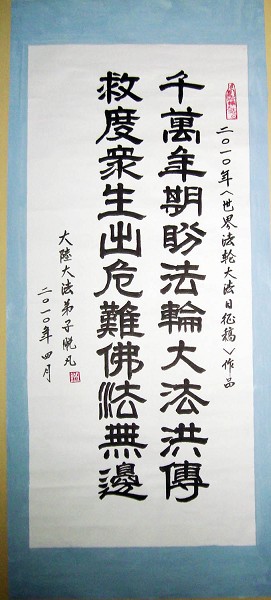 二〇一〇年《世界法轮大法日征稿》作品
千萬年期盼法輪大法洪傳
救度衆生出危難佛法無邊
大陸大法弟子帆凡
二〇一〇年四月